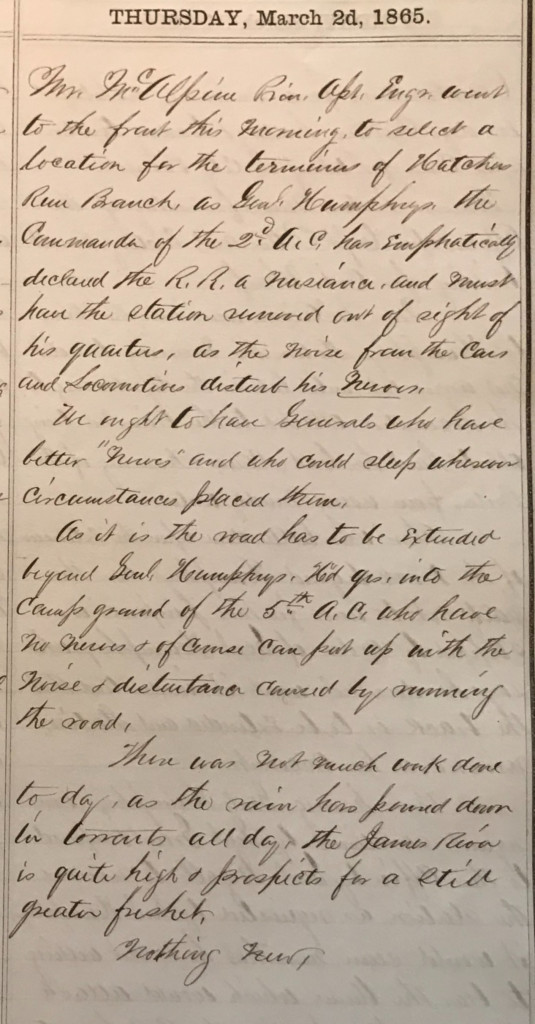 THURSDAY, March 2d, 1865.
Mr. McAlpine Prin. Ast. Engr. went
to the front this morning, to select a
location for the terminus of Hatchers
Run Branch, as Genl. Humphrys. the
Commander of the 2d. A.C. has Emphatically
declared the R.R. a nusiance, and must
have the station removed out of sight of
his quarters, as the noise from the Cars
and Locomotives disturb his Nerves.
We ought to have Generals who have
better "nerves" and who could sleep wherever
Circumstances placed them.
As it is the road has to be Extended
beyond Genl. Humphrys. Hd qrs. into the
Camp ground of the 5th A.C. who have
no nerves & of course can put up with the
noise & disturbance caused by running
the road.
There was not much work done
to day, as the rain has poured down
in torrents all day, the James River
is quite high & prospects for a still
greater freshet.
Nothing new,